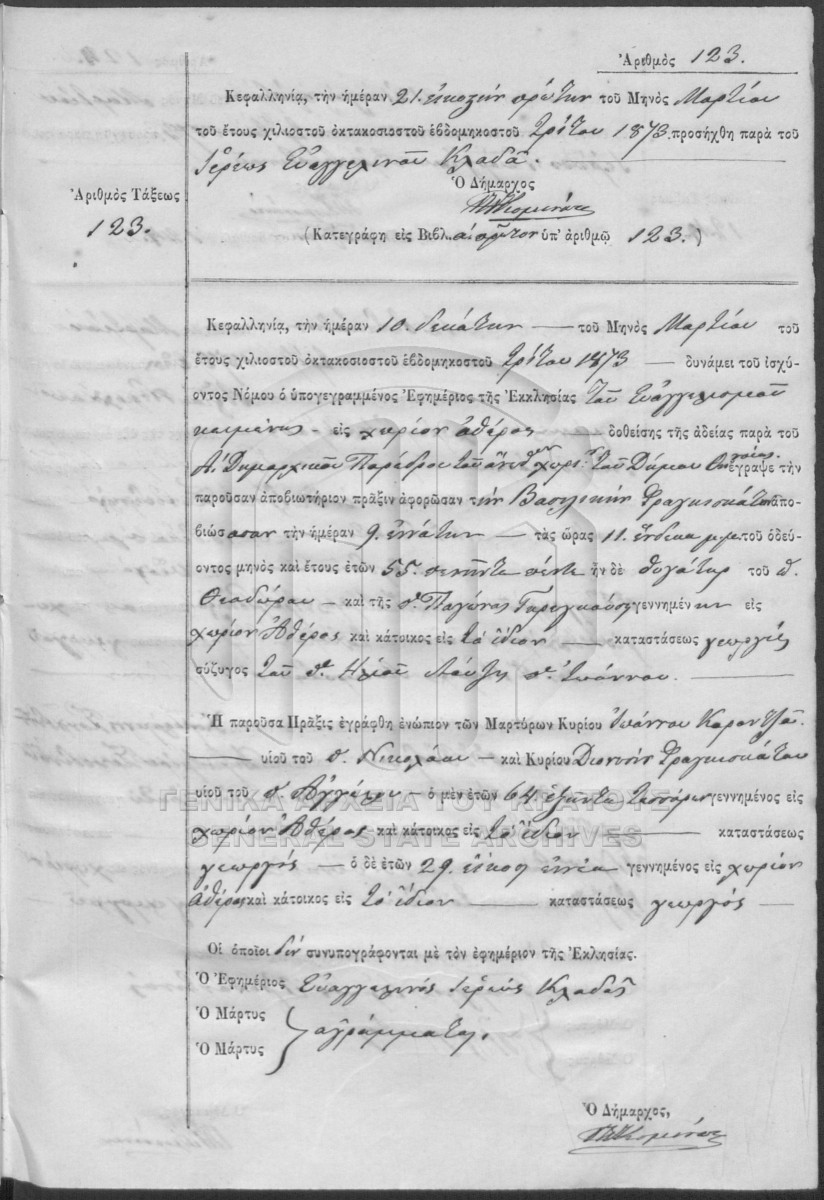 Ἀριθμὸς 123.
Κεφαλληνίᾳ, τὴν ἡμέραν 21. εἰκοστὴν πρώτην τοῦ Μηνὸς Μαρτίου
τοῦ ἔτους χιλιοστοῦ ὀκτακοσιοστοῦ ἑβδομηκοστοῦ τρίτου 1873. προσήχθη παρὰ τοῦ
Ἱερέως Εὐαγγελινοῦ Κλαδᾶ.
Ὁ Δήμαρχος
Ἀριθμὸς Τάξεως
123.
(Κατεγράφη εἰς Βιβλ. αον πρῶτον ὑπ' ἀριθμῷ 123.)
Κεφαλληνίᾳ, τὴν ἡμέραν 10. δεκάτην τοῦ Μηνὸς Μαρτίου τοῦ
ἔτους χιλιοστοῦ ὀκτακοσιοστοῦ ἑβδομηκοστοῦ τρίτου 1873 δυνάμει τοῦ ἰσχύ-
οντος Νόμου ὁ ὑπογεγραμμένος Ἐφημέριος τῆς Ἐκκλησίας τοῦ Εὐαγγελισμοῦ
κειμένης εἰς χωρίον Ἀθέρας δοθείσης τῆς ἀδείας παρὰ τοῦ
Δημαρχικοῦ Παρέδρου τοῦ ἄνωθεν χωρίου τοῦ Δήμου ἔγραψε τὴν
παροῦσαν ἀποβιωτήριον πρᾶξιν ἀφορῶσαν τὴν Βασιλικὴν Φραγκισκάτου ἀπο-
βιώσασαν τὴν ἡμέραν 9. ἐννάτην τὰς ὥρας 11. ἕνδεκα μ.μ. τοῦ ὁδεύ-
οντος μηνὸς καὶ ἔτους ἐτῶν 55. πενῆντα πέντε ἦν δὲ θυγάτηρ τοῦ π.
Θεοδώρου καὶ τῆς π. Παγώνας γεννημένην εἰς
χωρίον Ἀθέρας καὶ κάτοικος εἰς τὸ ἴδιον καταστάσεως γεωργὸς
σύζυγος τοῦ π. Ἠλιοῦ π. Ἰωάννου.
Ἡ παροῦσα Πρᾶξις ἐγράφθη ἐνώπιον τῶν Μαρτύρων Κυρίου Ἰωάννου
υἱοῦ τοῦ π. Νικολάου καὶ Κυρίου Διονυσίου Φραγκισκάτου
υἱοῦ τοῦ π. Ἀγγέλου ὁ μὲν ἐτῶν 64. ἑξῆντα τεσσάρων γεννημένος εἰς
χωρίον Ἀθέρας καὶ κάτοικος εἰς τὸ ἴδιον καταστάσεως
γεωργός ὁ δὲ ἐτῶν 29. εἴκοσι ἐννέα γεννημένος εἰς χωρίον
Ἀθέρας καὶ κάτοικος εἰς τὸ ἴδιον καταστάσεως γεωργός
Οἱ ὁποῖοι δὲν συνυπογράφονται μὲ τὸν ἐφημέριον τῆς Ἐκλησίας.
Ὁ Ἐφημέριος Εὐαγγελινός Ἱερεύς Κλαδᾶς
Ὁ Μάρτυς
ἀγράμματοι.
Ὁ Μάρτυς
Ὁ Δήμαρχος,
ΓΕΝΙΚΑ ΑΡΧΕΙΑ ΤΟΥ ΚΡΑΤΟΥΣ
GENERAL STATE ARCHIVES